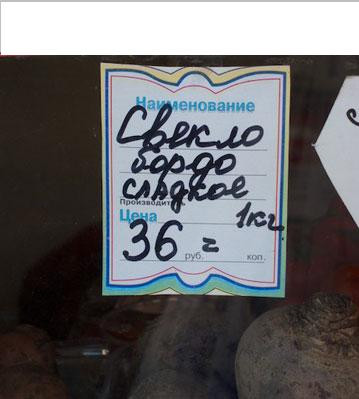 Наименование
Свекло
бордо
сладкое
Производитель
Цена
1кг.
36 руб. = коп.